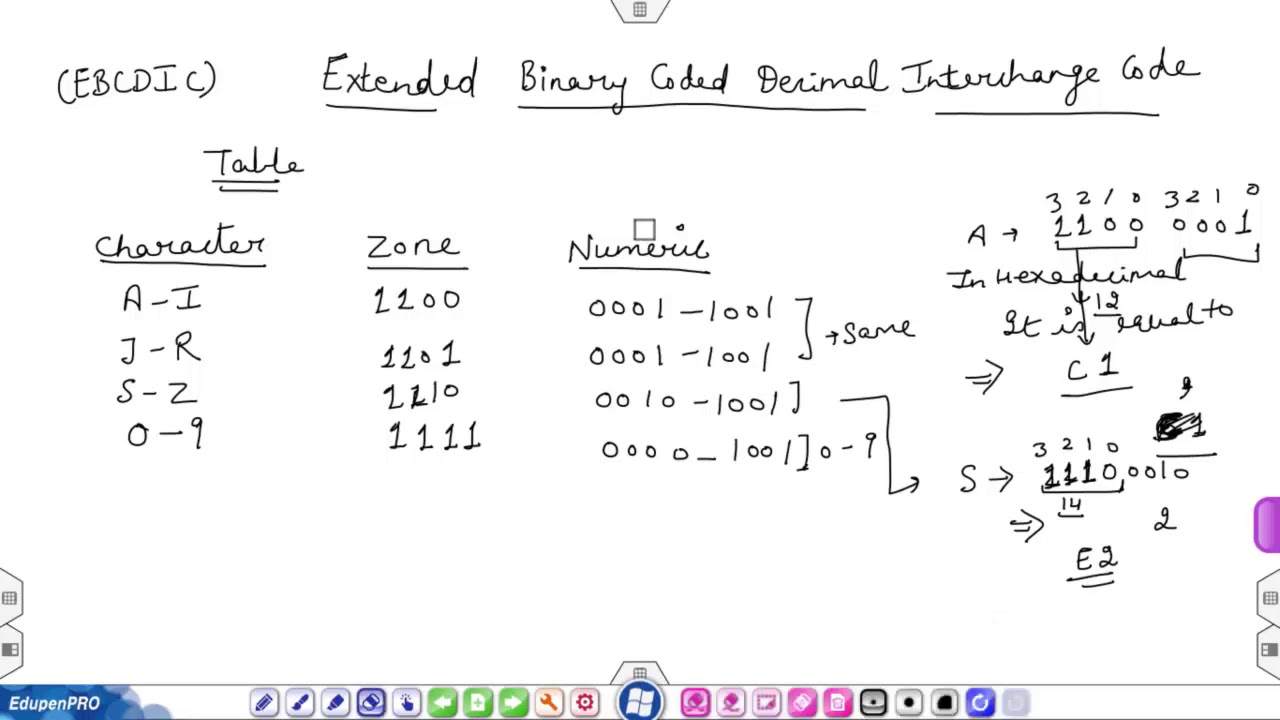 (EBCDIC) Extended Binary Coded Decimal Interchange Code
Table
Character Zone Numeric
A-I 1100 0001-1001
J-R 1101 0001-1001
→Same
S-Z 1110 0010-1001]
0-9 1111 0000-1001]0-9
3 2 1 0 3 2 1 0
A → 1100 0001
In Hexadecimal
12
It is equal to
⇒ C1
,
3 2 1 0
S → 1110,0010
14 2
⇒ E2
EdupenPRO